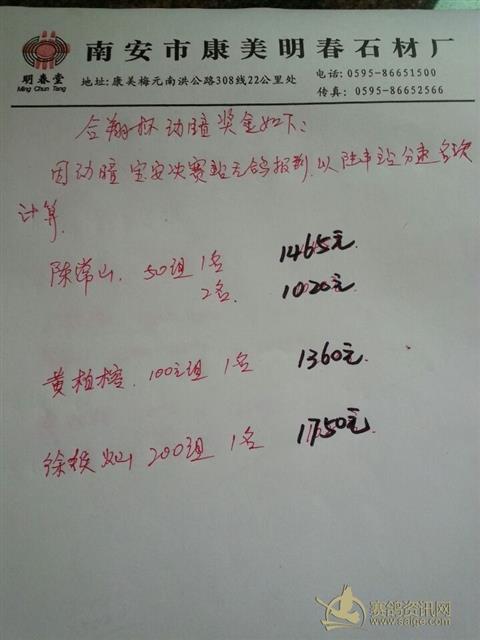 明春堂
Ming Chun Tang
南安市康美明春石材厂
地址:康美梅元南洪公路308线22公里处
电话:0595-86651500
传真:0595-86652566
合翔杯 动瞳奖金如下:
因动瞳 宝安决赛站无鸽报到,以陆丰站分速名次
计算.
陈常山. 50组 1名 1465元.
2名. 1020元.
黄柏榕. 100元组 1名 1360元.
徐 200组 1名 1750元.
赛鸽资讯网
www.saige.com